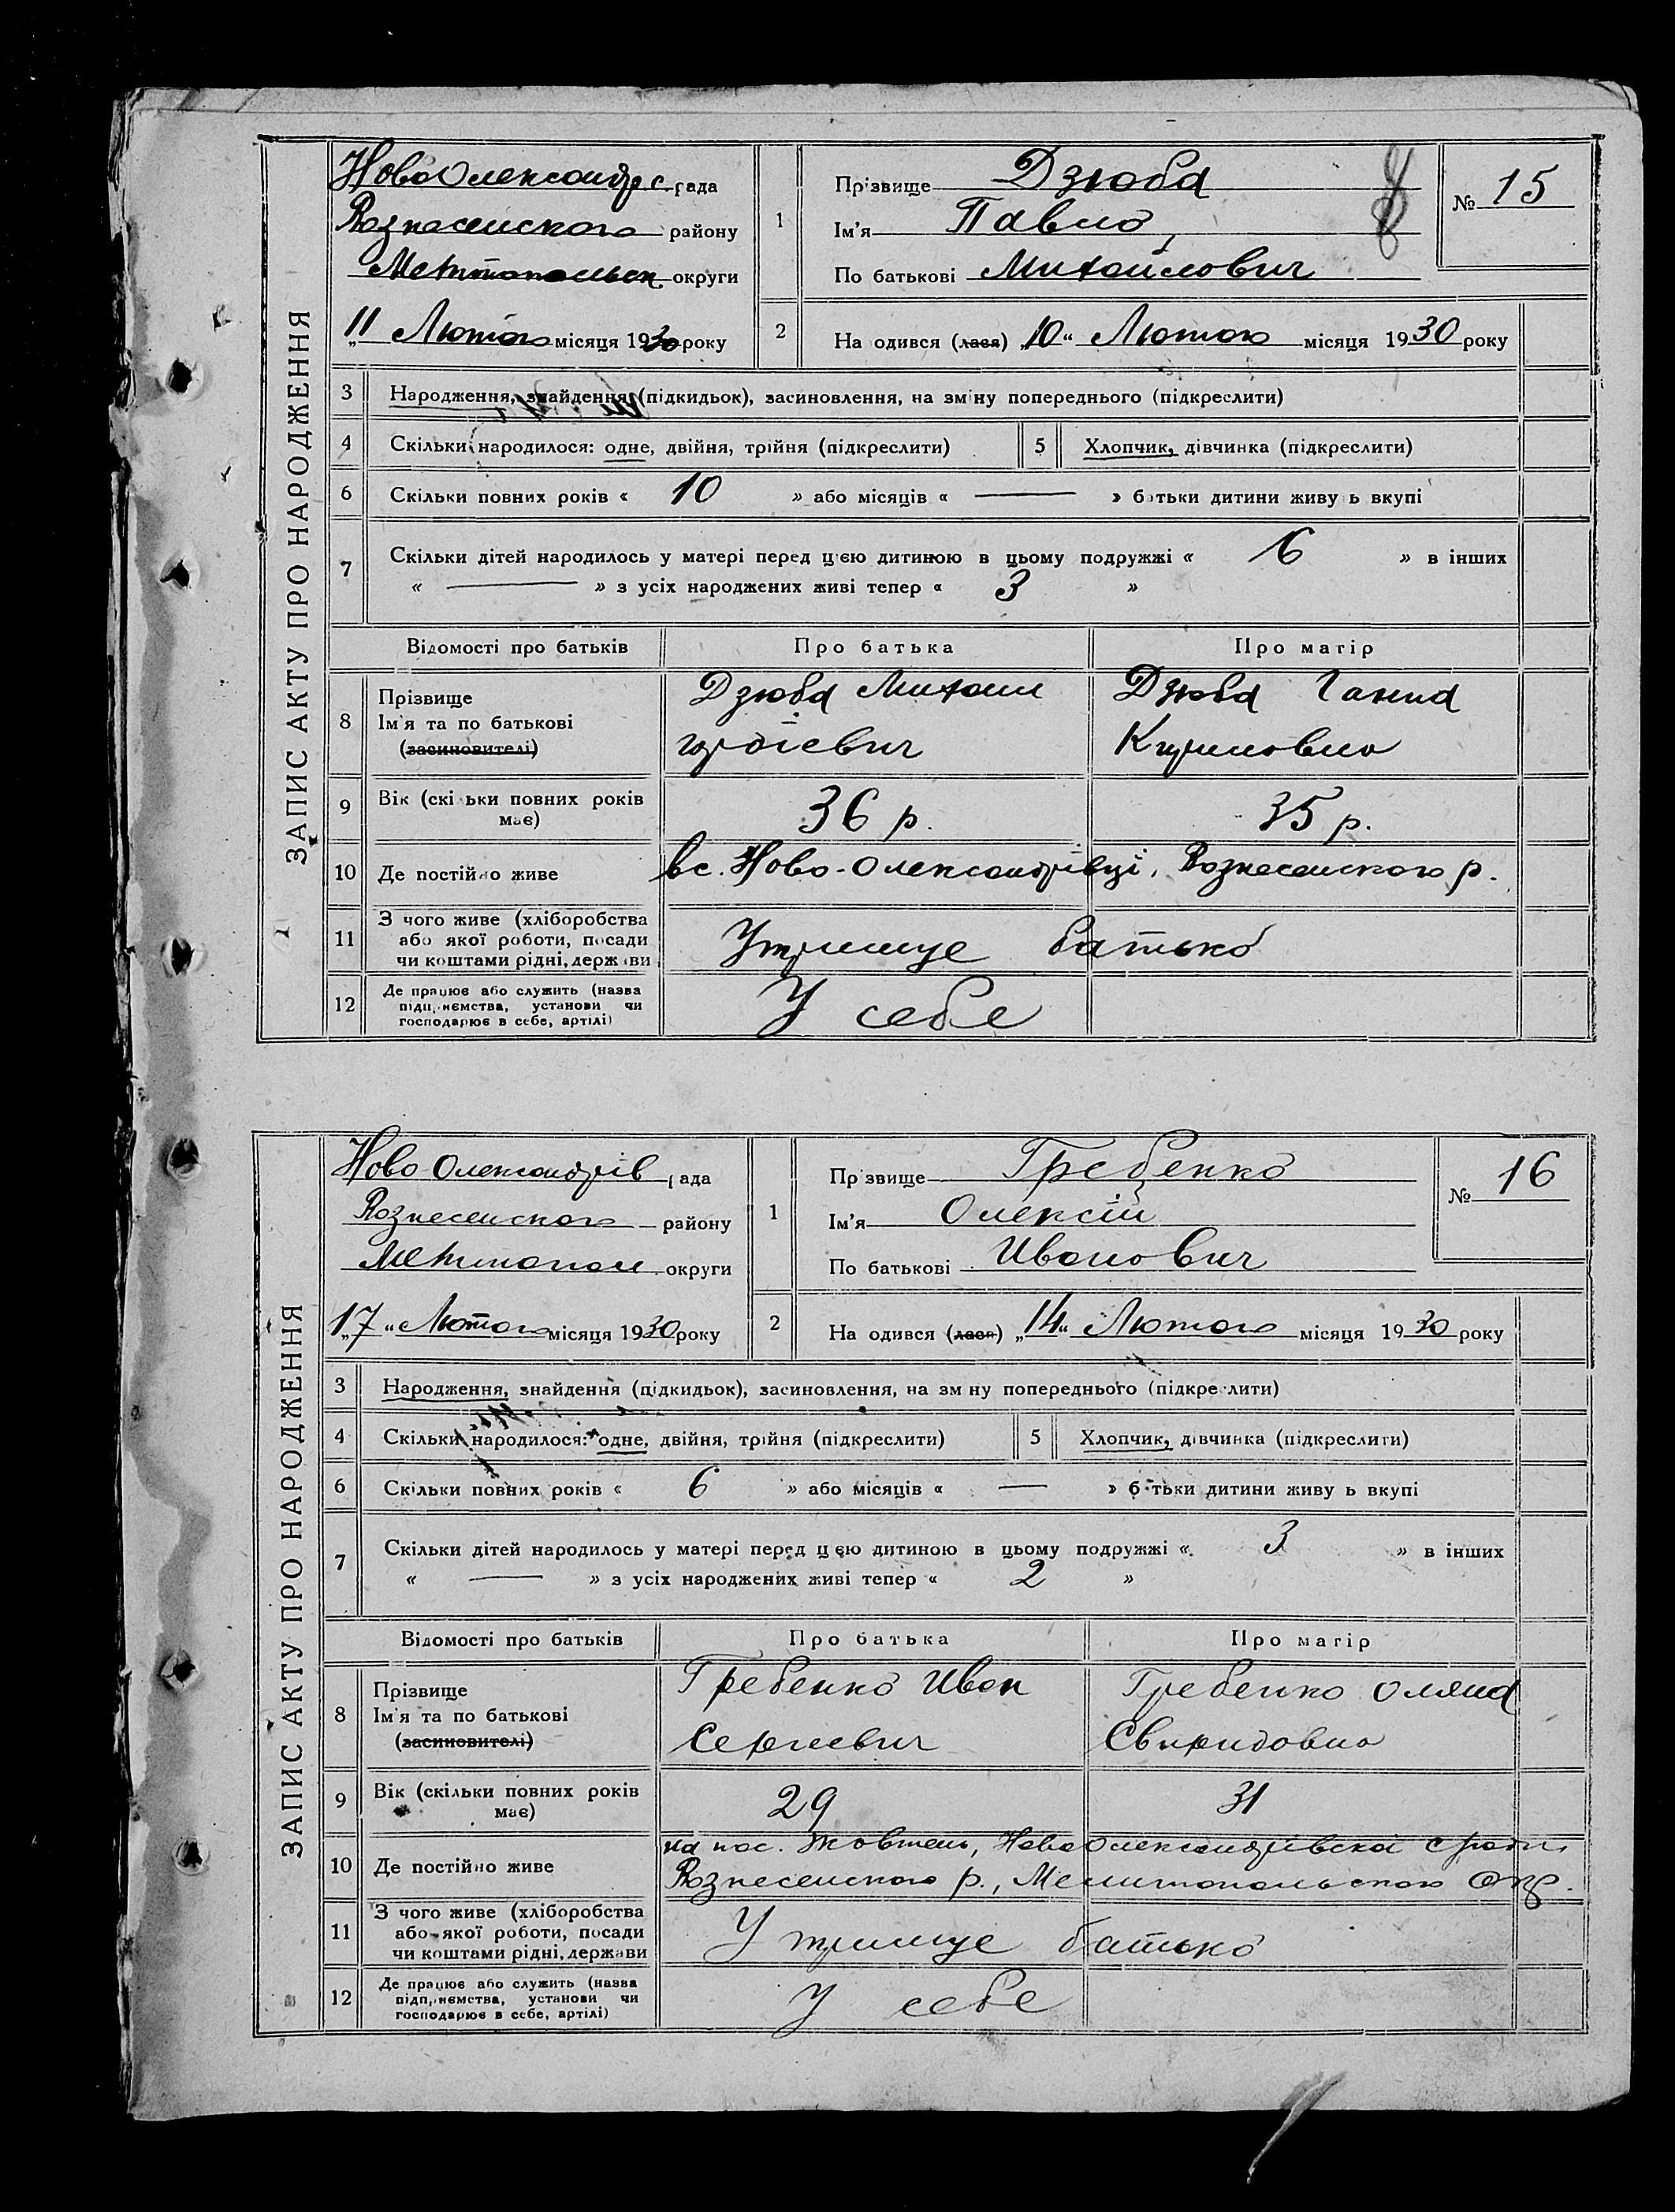 ЗАПИС АКТУ ПРО НАРОДЖЕННЯ
НовоОлександр с. рада
Вознесенского району
Мелітопольск округи
„11 Лютого місяця 1930 року
1 Прізвище Дзюба
Ім'я Павло
По батькові Михайлович
№ 15
2 На одився (лася) „10“ Лютого місяця 1930 року
3 Народження, знайдення (підкидьок), засиновлення, на зміну попереднього (підкреслити)
4 Скільки народилося: одне, двійня, трійня (підкреслити) 5 Хлопчик, дівчинка (підкреслити)
6 Скільки повних років « 10 » або місяців « — » батьки дитини живу ь вкупі
7 Скільки дітей народилось у матері перед цією дитиною в цьому подружжі « 6 » в інших
« — » з усіх народжених живі тепер « 3 »
Відомості про батьків Про батька Про матір
8 Прізвище Ім'я та по батькові (засиновителі)
Дзюба Михаил
Дзюба Ганна
Кириловна
9 Вік (скільки повних років має) 36 р. 35 р.
10 Де постійно живе вс. Ново-Олександрівці, Вознесенского р.
11 З чого живе (хліборобства
або якої роботи, посади
чи коштами рідні, держави
Утримує батько
12 Де працює або служить (назва
підприємства, установи чи
господарює в себе, артілі)
У себе
ЗАПИС АКТУ ПРО НАРОДЖЕННЯ
Ново-Олександрів рада
Вознесенского району
Мелитопол округи
„17“ Лютого місяця 1930 року
1 Прізвище Гребенко
Ім'я Олексій
По батькові Иванович
№ 16
2 На одився (лася) „14“ Лютого місяця 1930 року
3 Народження, знайдення (підкидьок), засиновлення, на зм ну попереднього (підкреслити)
4 Скільки народилося: одне, двійня, трійня (підкреслити) 5 Хлопчик, дівчинка (підкреслити)
6 Скільки повних років « 6 » або місяців « — » б тьки дитини живу ь вкупі
7 Скільки дітей народилось у матері перед цією дитиною в цьому подружжі « 3 » в інших
« — » з усіх народжених живі тепер « 2 »
Відомості про батьків Про батька Про матір
8 Прізвище Ім'я та по батькові (засиновителі)
Гребенко Иван
Сергиевич
Гребенко Оляна
Свиридовна
9 Вік (скільки повних років має) 29 31
10 Де постійно живе на пос. Жовтень, НовоОлександрівскої с/ради
Вознесенского р., Мелитопольского Окр.
11 З чого живе (хліборобства
або якої роботи, посади
чи коштами рідні, держави
Утримує батько
12 Де працює або служить (назва
підприємства, установи чи
господарює в себе, артілі)
У себе